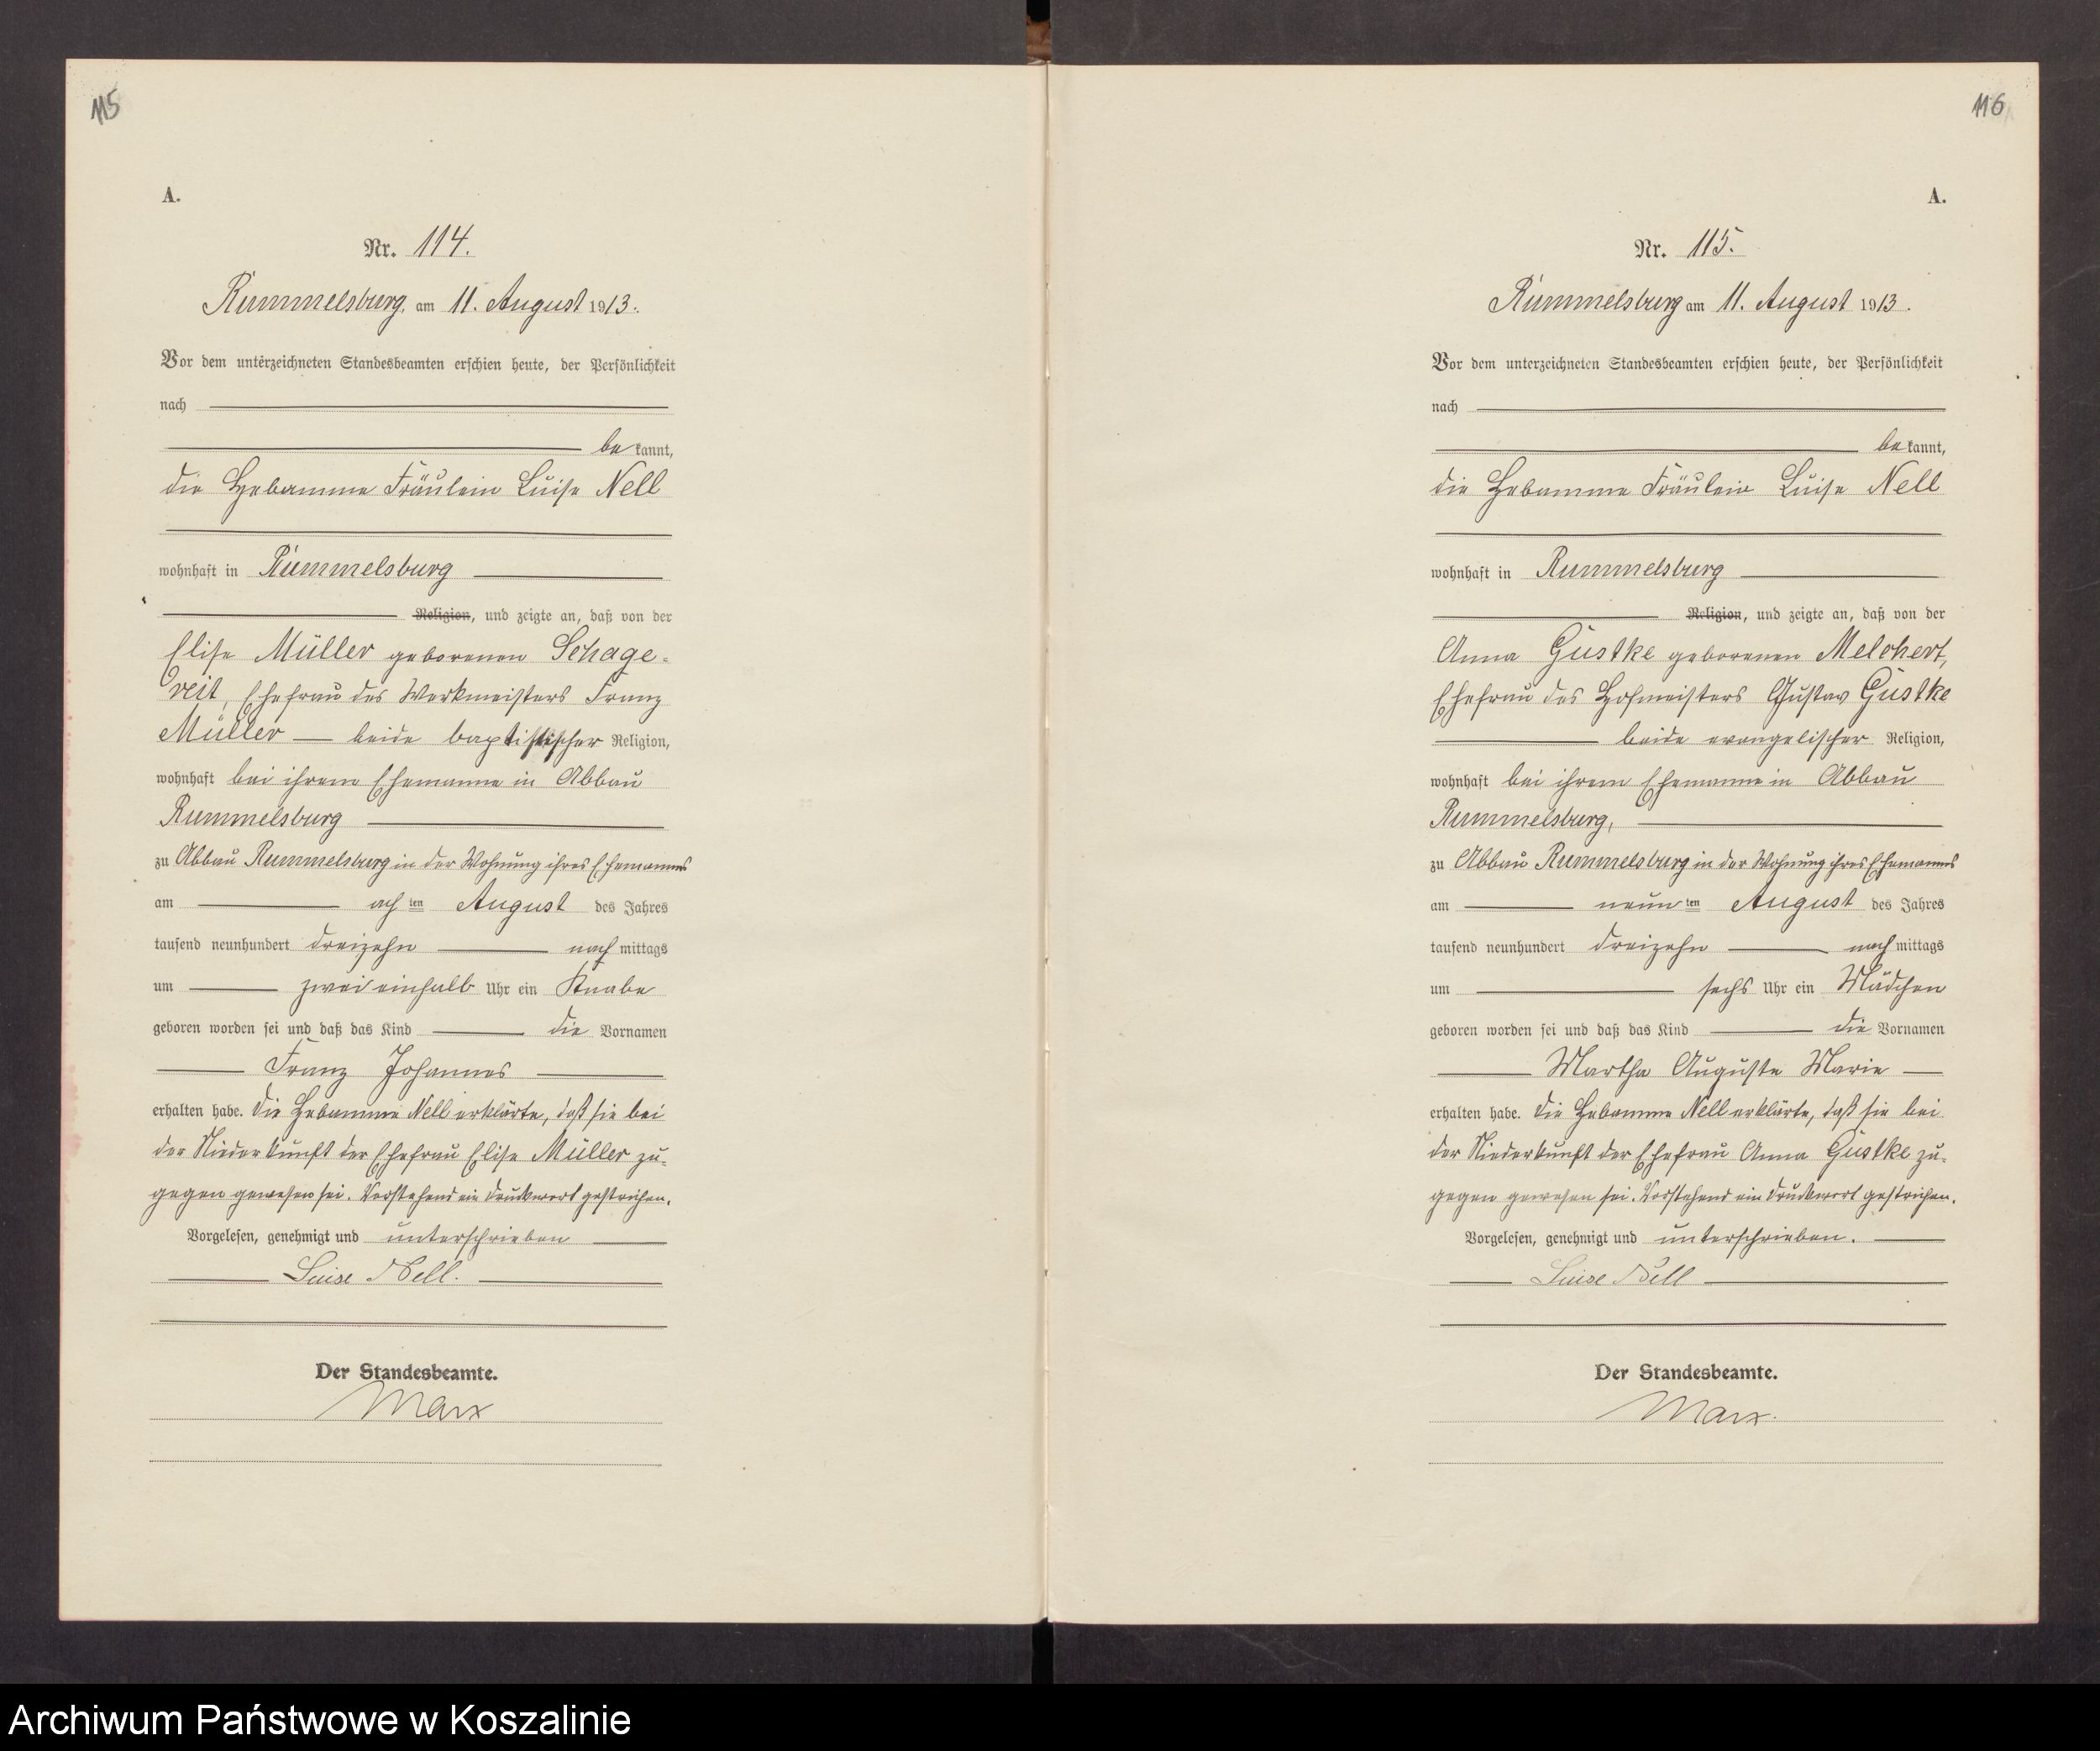 115
A.
Nr. 114.
Rummelsburg, am 11. August 1913.
Vor dem unterzeichneten Standesbeamten erschien heute, der Persönlichkeit
nach
be kannt,
die Hebamme Fräulein Luise Nell
wohnhaft in Rummelsburg
Religion, und zeigte an, daß von der
Elise Müller geborenen Schage-
reit, Ehefrau des Werkmeisters Franz
Müller — beide baptistischer Religion,
wohnhaft bei ihrem Ehemanne in Abbau
Rummelsburg
zu Abbau Rummelsburg in der Wohnung ihres Ehemannes
am ach ten August des Jahres
tausend neunhundert dreizehn nach mittags
um zwei einhalb Uhr ein Knabe
geboren worden sei und daß das Kind die Vornamen
Franz Johannes
erhalten habe. Die Hebamme Nell erklärte, daß sie bei
der Niederkunft der Ehefrau Elise Müller zu-
gegen gewesen sei. Vorstehend ein Druckwort gestrichen.
Vorgelesen, genehmigt und unterschrieben
Luise Nell.
Der Standesbeamte.
Marx
116
A.
Nr. 115.
Rummelsburg am 11. August 1913.
Vor dem unterzeichneten Standesbeamten erschien heute, der Persönlichkeit
nach
be kannt,
die Hebamme Fräulein Luise Nell
wohnhaft in Rummelsburg
Religion, und zeigte an, daß von der
Anna Gustke geborenen Melchert,
Ehefrau des Hofmeisters Gustav Gustke
beide evangelischer Religion,
wohnhaft bei ihrem Ehemanne in Abbau
Rummelsburg,
zu Abbau Rummelsburg in der Wohnung ihres Ehemannes
am neun ten August des Jahres
tausend neunhundert dreizehn nach mittags
um sechs Uhr ein Mädchen
geboren worden sei und daß das Kind die Vornamen
Martha Auguste Marie
erhalten habe. Die Hebamme Nell erklärte, daß sie bei
der Niederkunft der Ehefrau Anna Gustke zu-
gegen gewesen sei. Vorstehend ein Druckwort gestrichen.
Vorgelesen, genehmigt und unterschrieben.
Luise Nell
Der Standesbeamte.
Marx.
Archiwum Państwowe w Koszalinie